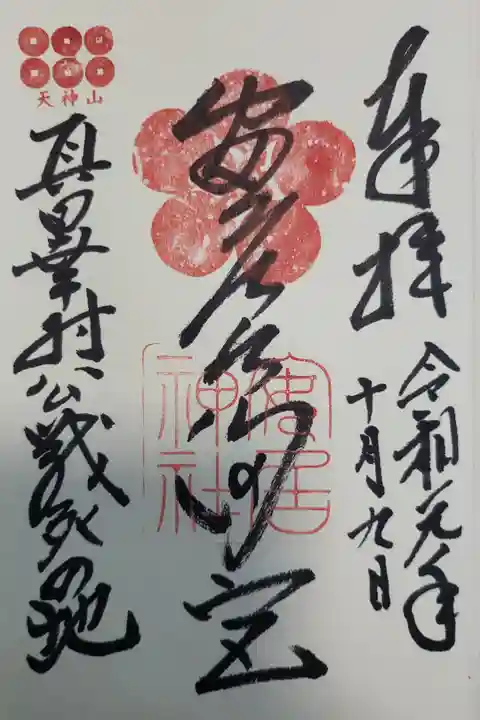 奉拝
令和元年
十月九日
安居天満宮
安居
神社
天神山
真田幸村公戦死の地